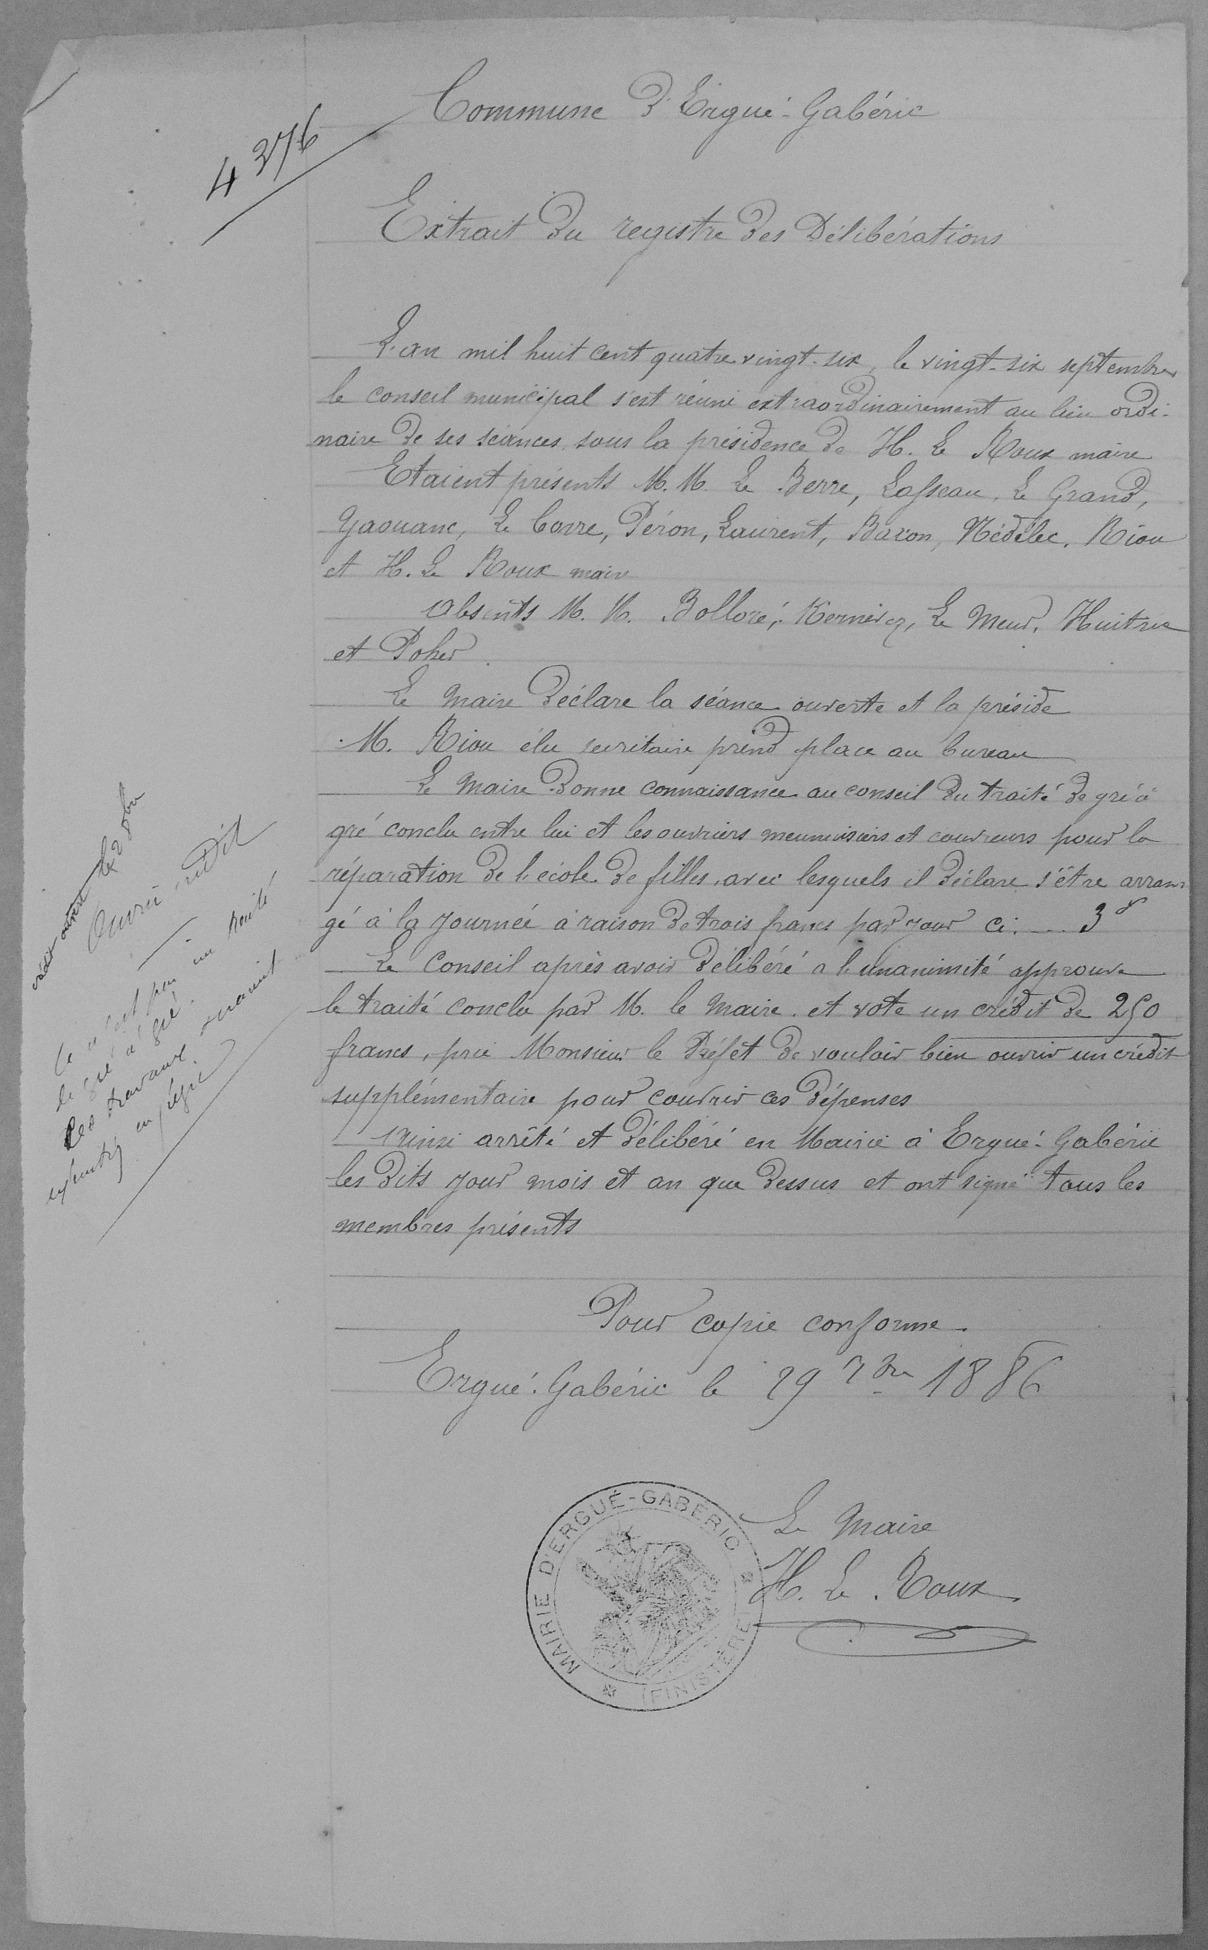 4 376
Commune d'Ergué-Gabéric
Extrait du registre des Délibérations
L'an mil huit cent quatre vingt-six, le vingt-six septembre
le conseil municipal s'est réuni extraordinairement au lieu ordi-
naire de ses séances, sous la présidence de H. Le Roux maire
Etaient présents M.M. Le Berre, Lasseau, Le Grand,
Gaouanc, Le Corre, Péron, Laurent, Baron, Nédélec, Riou
et H. Le Roux maire
Absents M. M. Bolloré, Kernévez, Le Meur, Huitric
et Poher
Le Maire déclare la séance ouverte et la préside
M. Riou élu secritaire prend place au bureau
Le Maire donne connaissance au conseil du traité de gré à
gré conclu entre lui et les ouvriers menuisiers et couvreurs pour la
réparation de l'école de filles, avec lesquels il déclare s'être arran-
gé à la journée à raison de trois francs par jour ci. ... 3 f
Le Conseil après avoir délibéré a l'unanimité approuve
le traité conclu par M. le Maire. et vote un crédit de 250
francs, prie Monsieur le Préfet de vouloir bien ouvrir un crédit
supplémentaire pour couvrir ces dépenses
Ainsi arrêté et délibéré en Mairie à Ergué-Gabéric
les dits jour mois et an que dessus et ont signé tous les
membres présents
Pour copie conforme
Ergué-Gabéric le 29 7bre 1886
Le Maire
H. Le Roux
MAIRIE D'ERGUÉ-GABÉRIC
(FINISTÈRE)
ouvert le 28
Ouvrir crédit
Ce n'est pas un traité
de gré à gré
Les travaux seraient
exécutés en régie